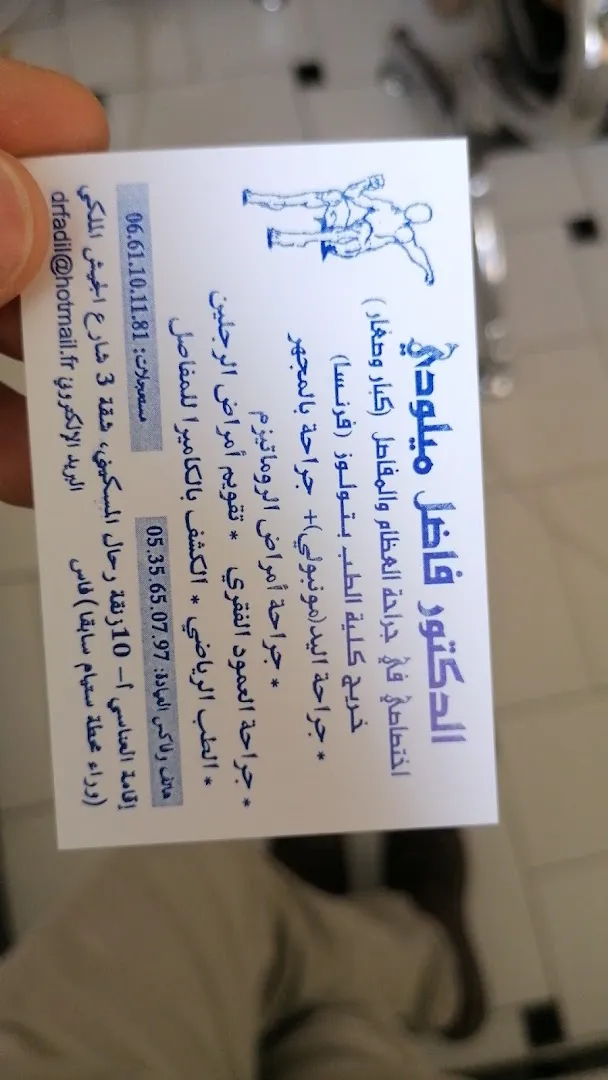 الدكتور فاضل ميلودي
اختصاصي في جراحة العظام والمفاصل (كبار وصغار)
خريج كلية الطب بتولوز (فرنسا)
* جراحة اليد(مونبولي)+ جراحة بالمجهر
* جراحة أمراض الروماتيزم
* جراحة العمود الفقري * تقويم أمراض الرجلين
* الطب الرياضي * الكشف بالكاميرا للمفاصل
هاتف وفاكس العيادة: 05.35.65.07.97 مستعجلات: 06.61.10.11.81
إقامة العباسي أ- 10زنقة رحال المسكيني، شقة 3 شارع الجيش الملكي
(وراء محطة ستيام سابقا) فاس البريد الإلكتروني drfadil@hotmail.fr